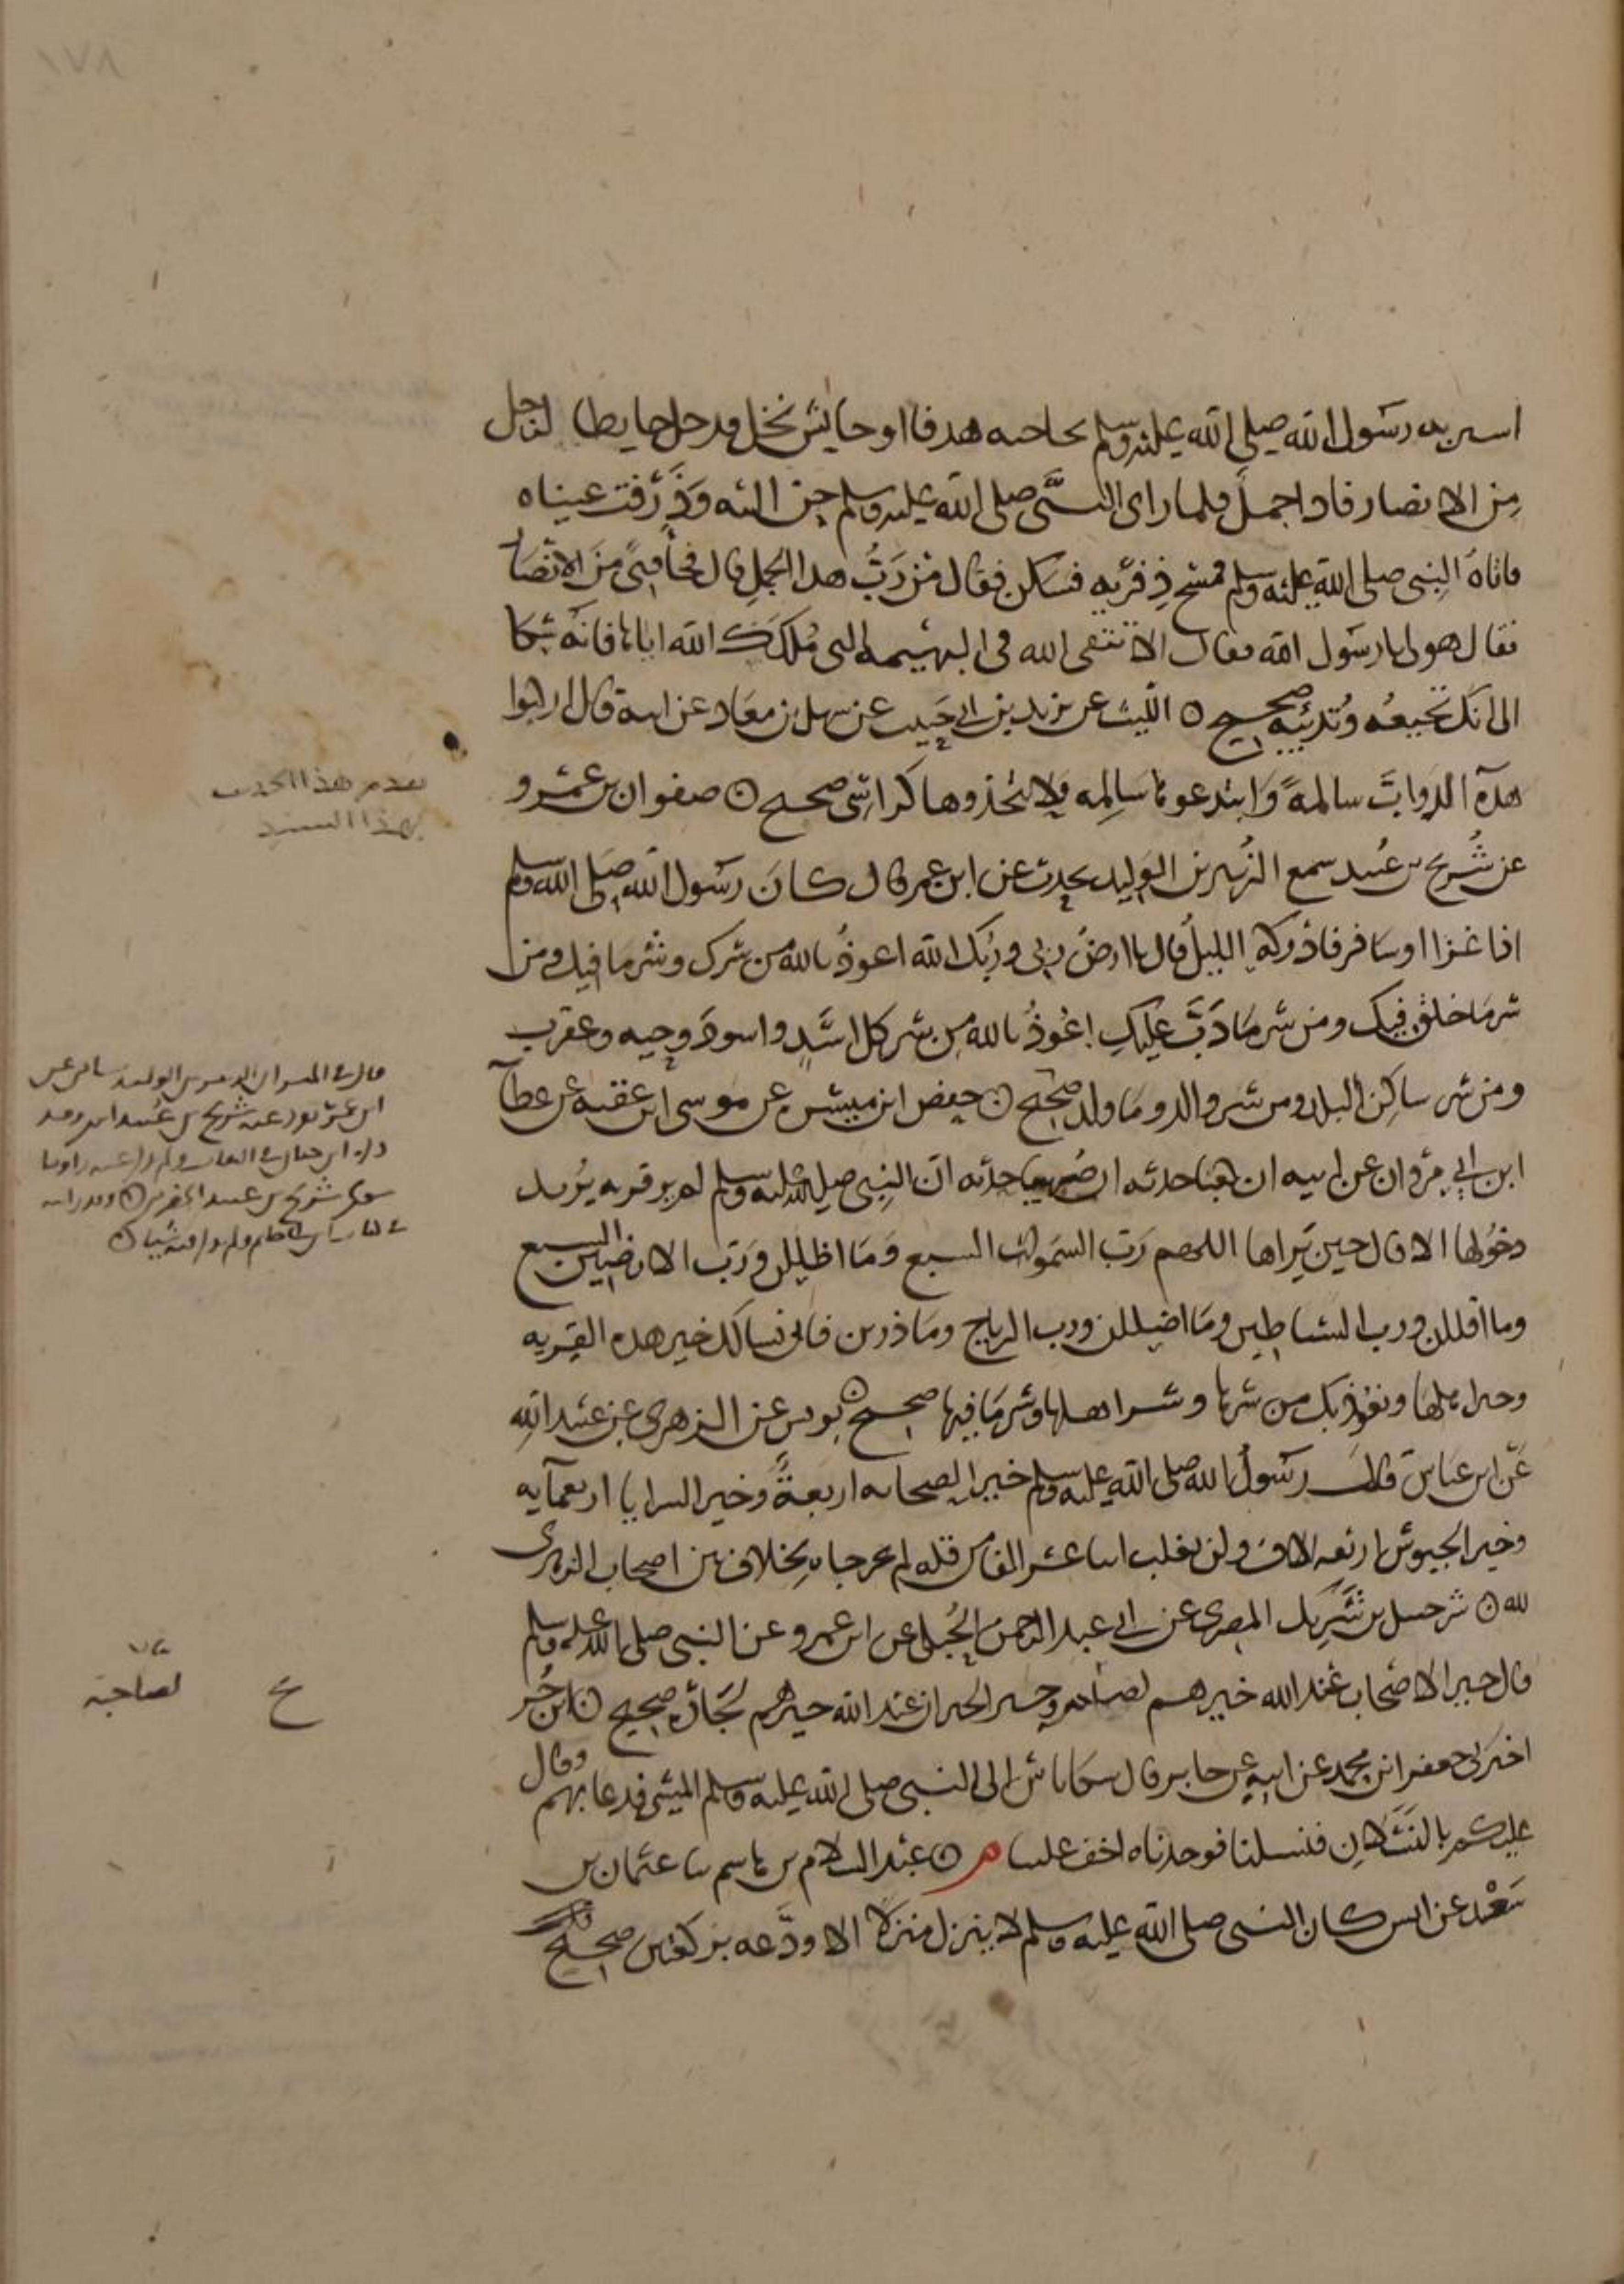 استتر به رسول الله صلى الله عليه وسلم لحاجته هدفا او حايش نخل فدخل حايطا لرجل
من الانصار فاذا جمل فلما راى النبي صلى الله عليه وسلم حن اليه وذرفت عيناه
فاتاه النبي صلى الله عليه وسلم فمسح ذفريه فسكن فقال من رب هذا الجمل قال فجا فتى من الانصار
فقال هو لي يا رسول الله فقال الا تتقي الله في البهيمة التي ملكك الله اياها فانه شكا
الي انك تجيعه وتدئبه صحيح ۞ الليث عن يزيد بن ابي حبيب عن سهل بن معاذ عن ابيه قال اركبوا
هذه الدواب سالمة وابتدعوها سالمه ولا تتخذوها كراسي صحيح ۞ صفوان بن عمرو
عن شريح بن عبيد سمع الزبير بن الوليد يحدث عن ابن عمر قال كان رسول الله صلى الله وسلم
اذا غزا او سافر فادركه الليل قال يا ارض ربي وربك الله اعوذ بالله من شرك وشر ما فيك ومن
شر ما خلق فيك ومن شر ما دب عليك اعوذ بالله من شر كل اسد واسود وحيه وعقرب
ومن شر ساكن البلد ومن شر والد وما ولد صحيح ۞ حفص ابن ميسره عن موسى ابن عقبه عن عطآ
ابن ابي مروان عن ابيه ان كعبا حدثه ان صهيبا حدثه ان النبي صلى الله عليه وسلم لم ير قريه يريد
دخولها الا قال حين يراها اللهم رب السموات السبع وما اظللن ورب الارضين السبع
وما اقللن ورب الشياطين وما اضللن ورب الرياح وما ذرين فانا نسالك خير هذه القريه
وخير اهلها ونعوذ بك من شرها وشر اهلها وشر ما فيها صحيح ۞ يونس عن الزهري عن عبيد الله
عن ابن عباس قال رسول الله صلى الله عليه وسلم خير الصحابه اربعة وخير السرايا اربعمآيه
وخير الجيوش اربعه الاف ولن يغلب اثنا عشر الفا من قله لم يخرجاه لخلاف بين اصحاب الزهري
لله ۞ شرحبيل بن شريك المصري عن ابي عبد الرحمن الحبلي عن ابن عمرو عن النبي صلى الله عليه وسلم
قال خير الاصحاب عند الله خيرهم لصاحبه وخير الجيران عند الله خيرهم لجاره صحيح ۞ ابن جر
اخبرني جعفر ابن محمد عن ابيه عن جابر قال شكا ناس الى النبي صلى الله عليه وسلم المشي فدعا بهم وقال
عليكم بالنسلان فنسلنا فوجدناه اخف علينا م ۞ عبد السلام بن هاشم ثنا عثمان بن
سعد عن انس كان النبي صلى الله عليه وسلم لا ينزل منزلا الا ودعه بركعتين صحيح
تقدم هذا الحديث
بهذا السند
قال في الميزان الزبير بن الوليد شامي عن
ابن عمر تفرد عنه شريح بن عبيد انتهى وقد
ذكره ابن حبان في الثقات ولم يذكر عنه راويا
سوى شريح بن عبيد الحضرمي ۞
لصاحبه